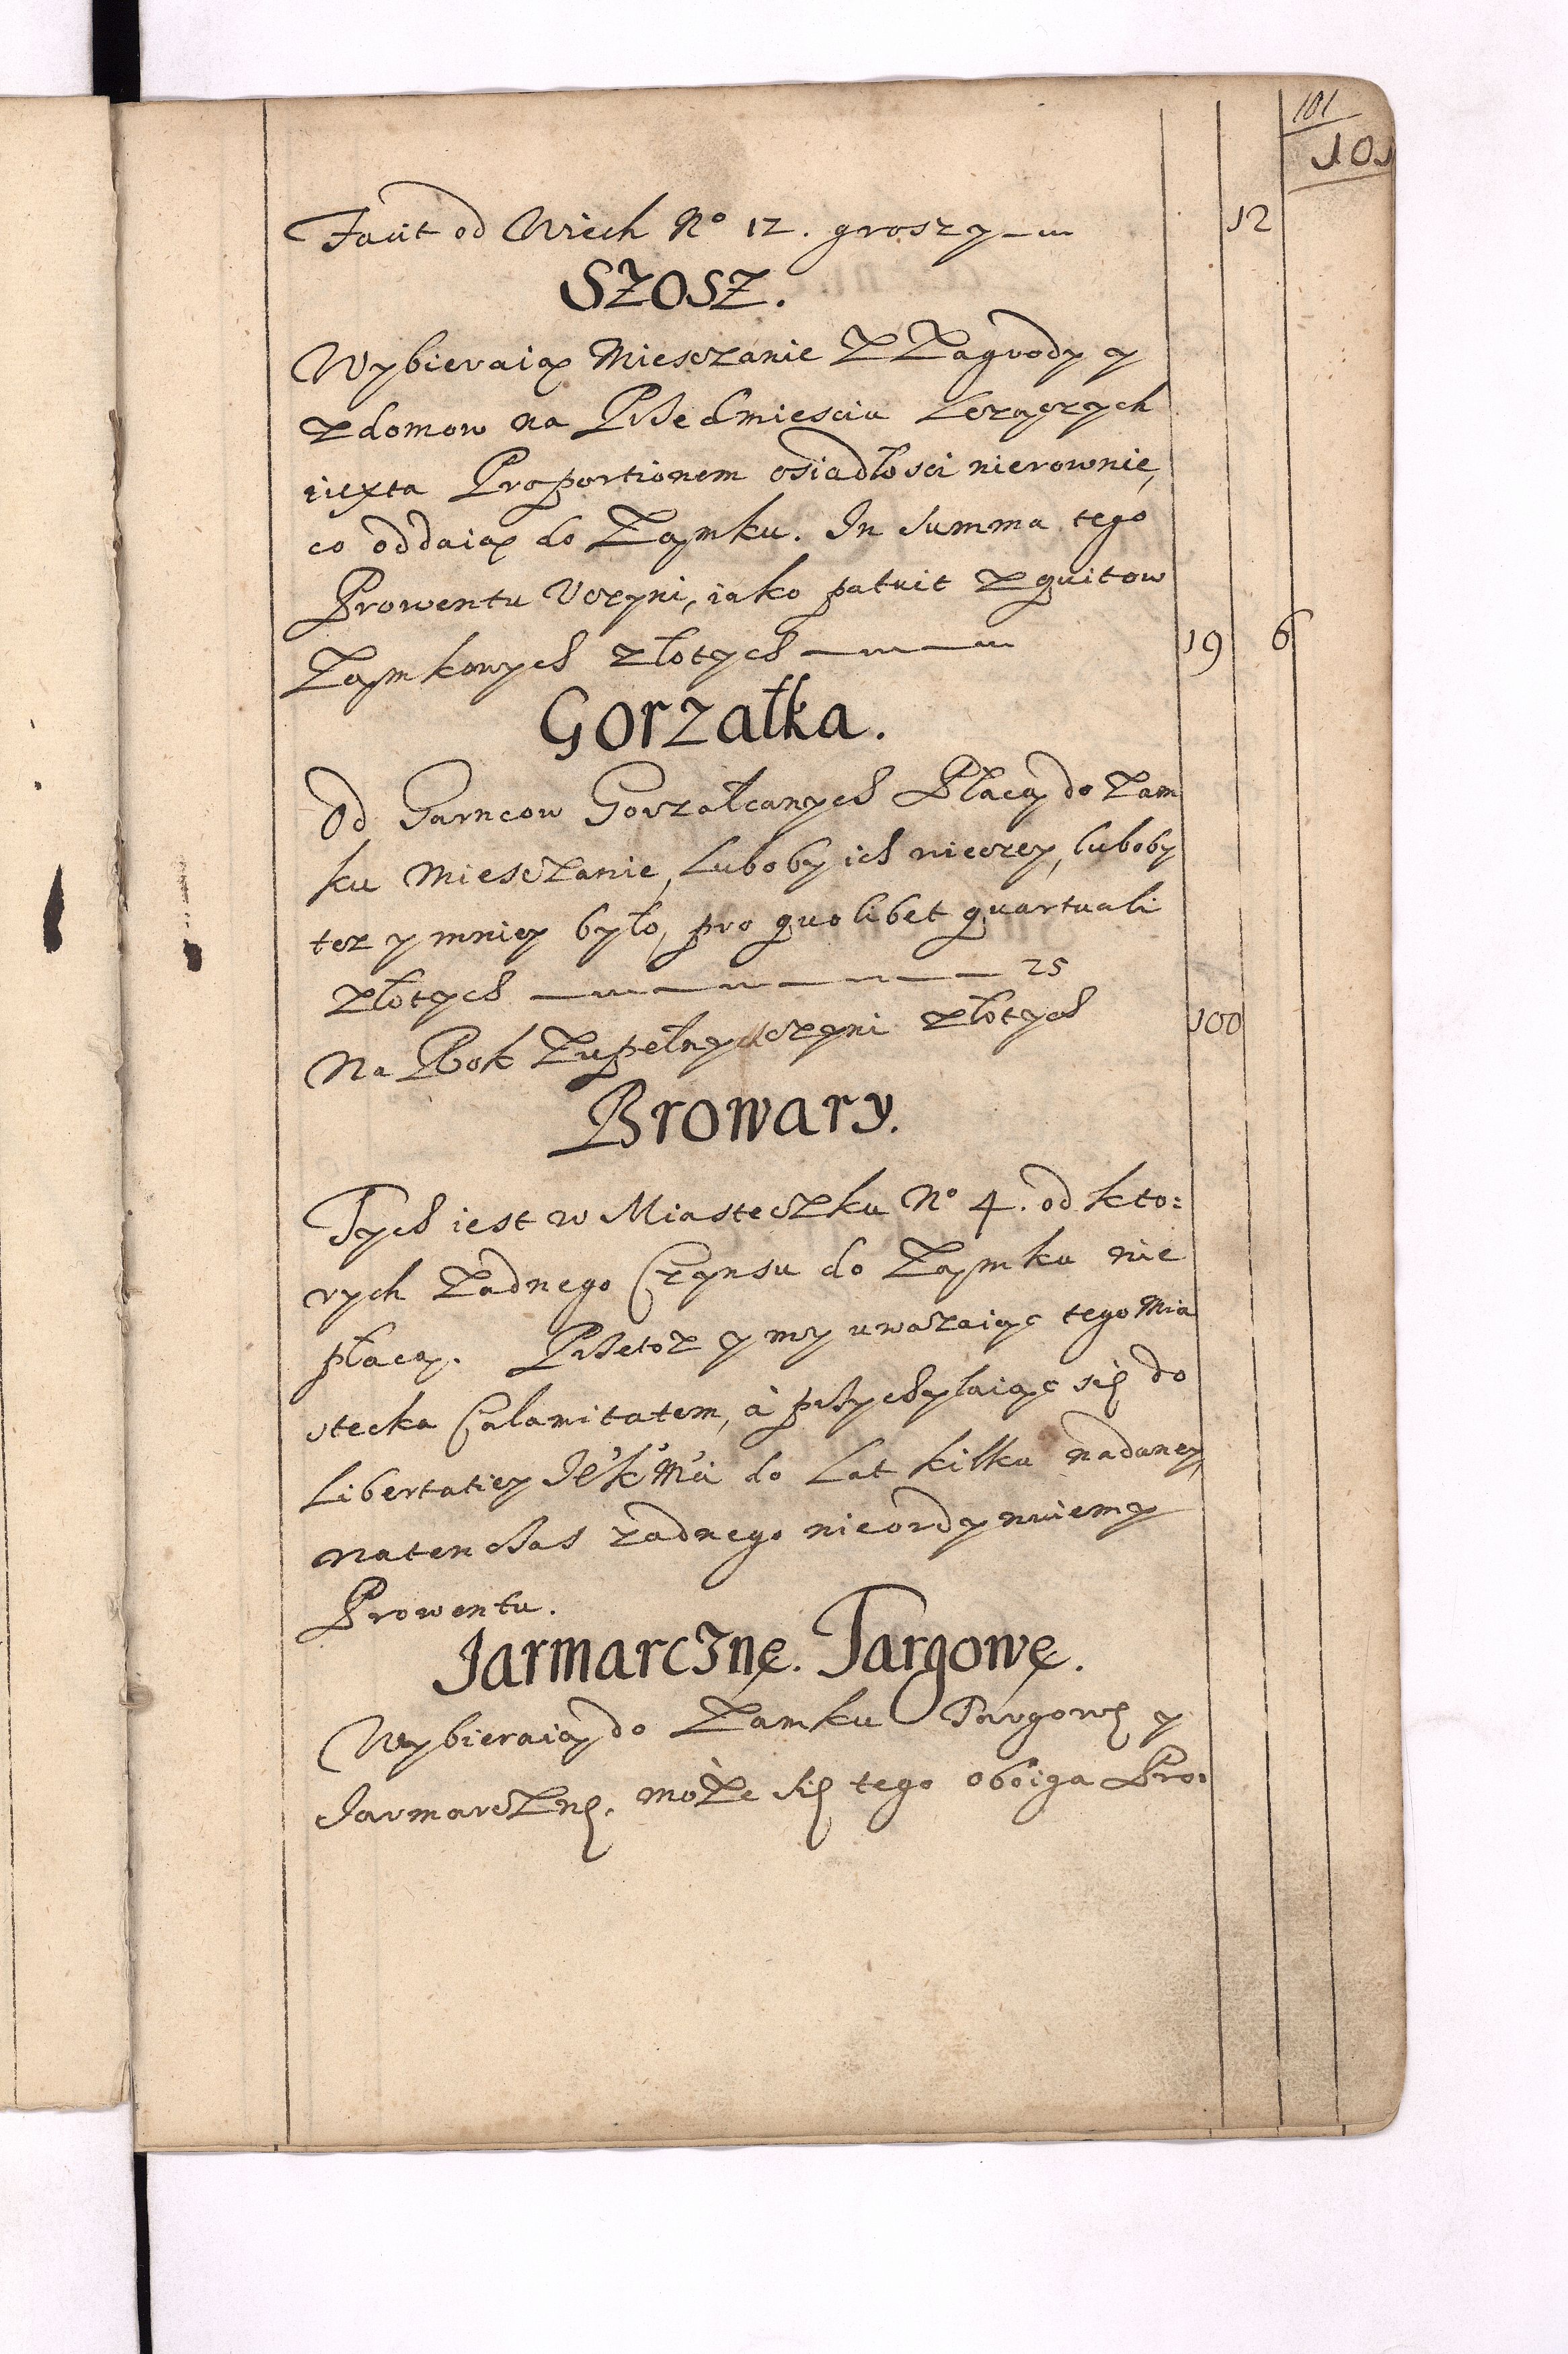 101
101
Facit od Wiech No 12. groszy 12
SZOSZ.
Wybieraią Miesczanie z Zagrody y
z domow na Przedmiesciu Lezących
iuxta Proportionem osiadłosci nierownie,
co oddaią do Zamku. In Summa tego
Prowentu Uczyni, iako patuit z quitow
Zamkowych złotych 19 6
Gorzałka.
Od Garncow Gorzałcanych Płacą do Zam
ku Miesczanie, luboby ich wiecey, luboby
tez y mniey było, pro quolibet quartuali
złotych 25
Na Rok Zupełny uczyni złotych 100
Browary.
Tych iest w Miasteczku No 4. od kto:
rych Zadnego Czynsu do Zamku nie
płacą. Przetoz y my uwazaiąc tego Mia
stecka Calamitatem, à przychylaiąc się do
Libertatiey do Lat kilku nadaney,
natenczas zadnego nieordynuiemy
Prowentu.
Jarmarcznę. Targowę.
Wybieraią do Zamku Targowę y
Jarmarcznę. może się tego oboiga Pro: